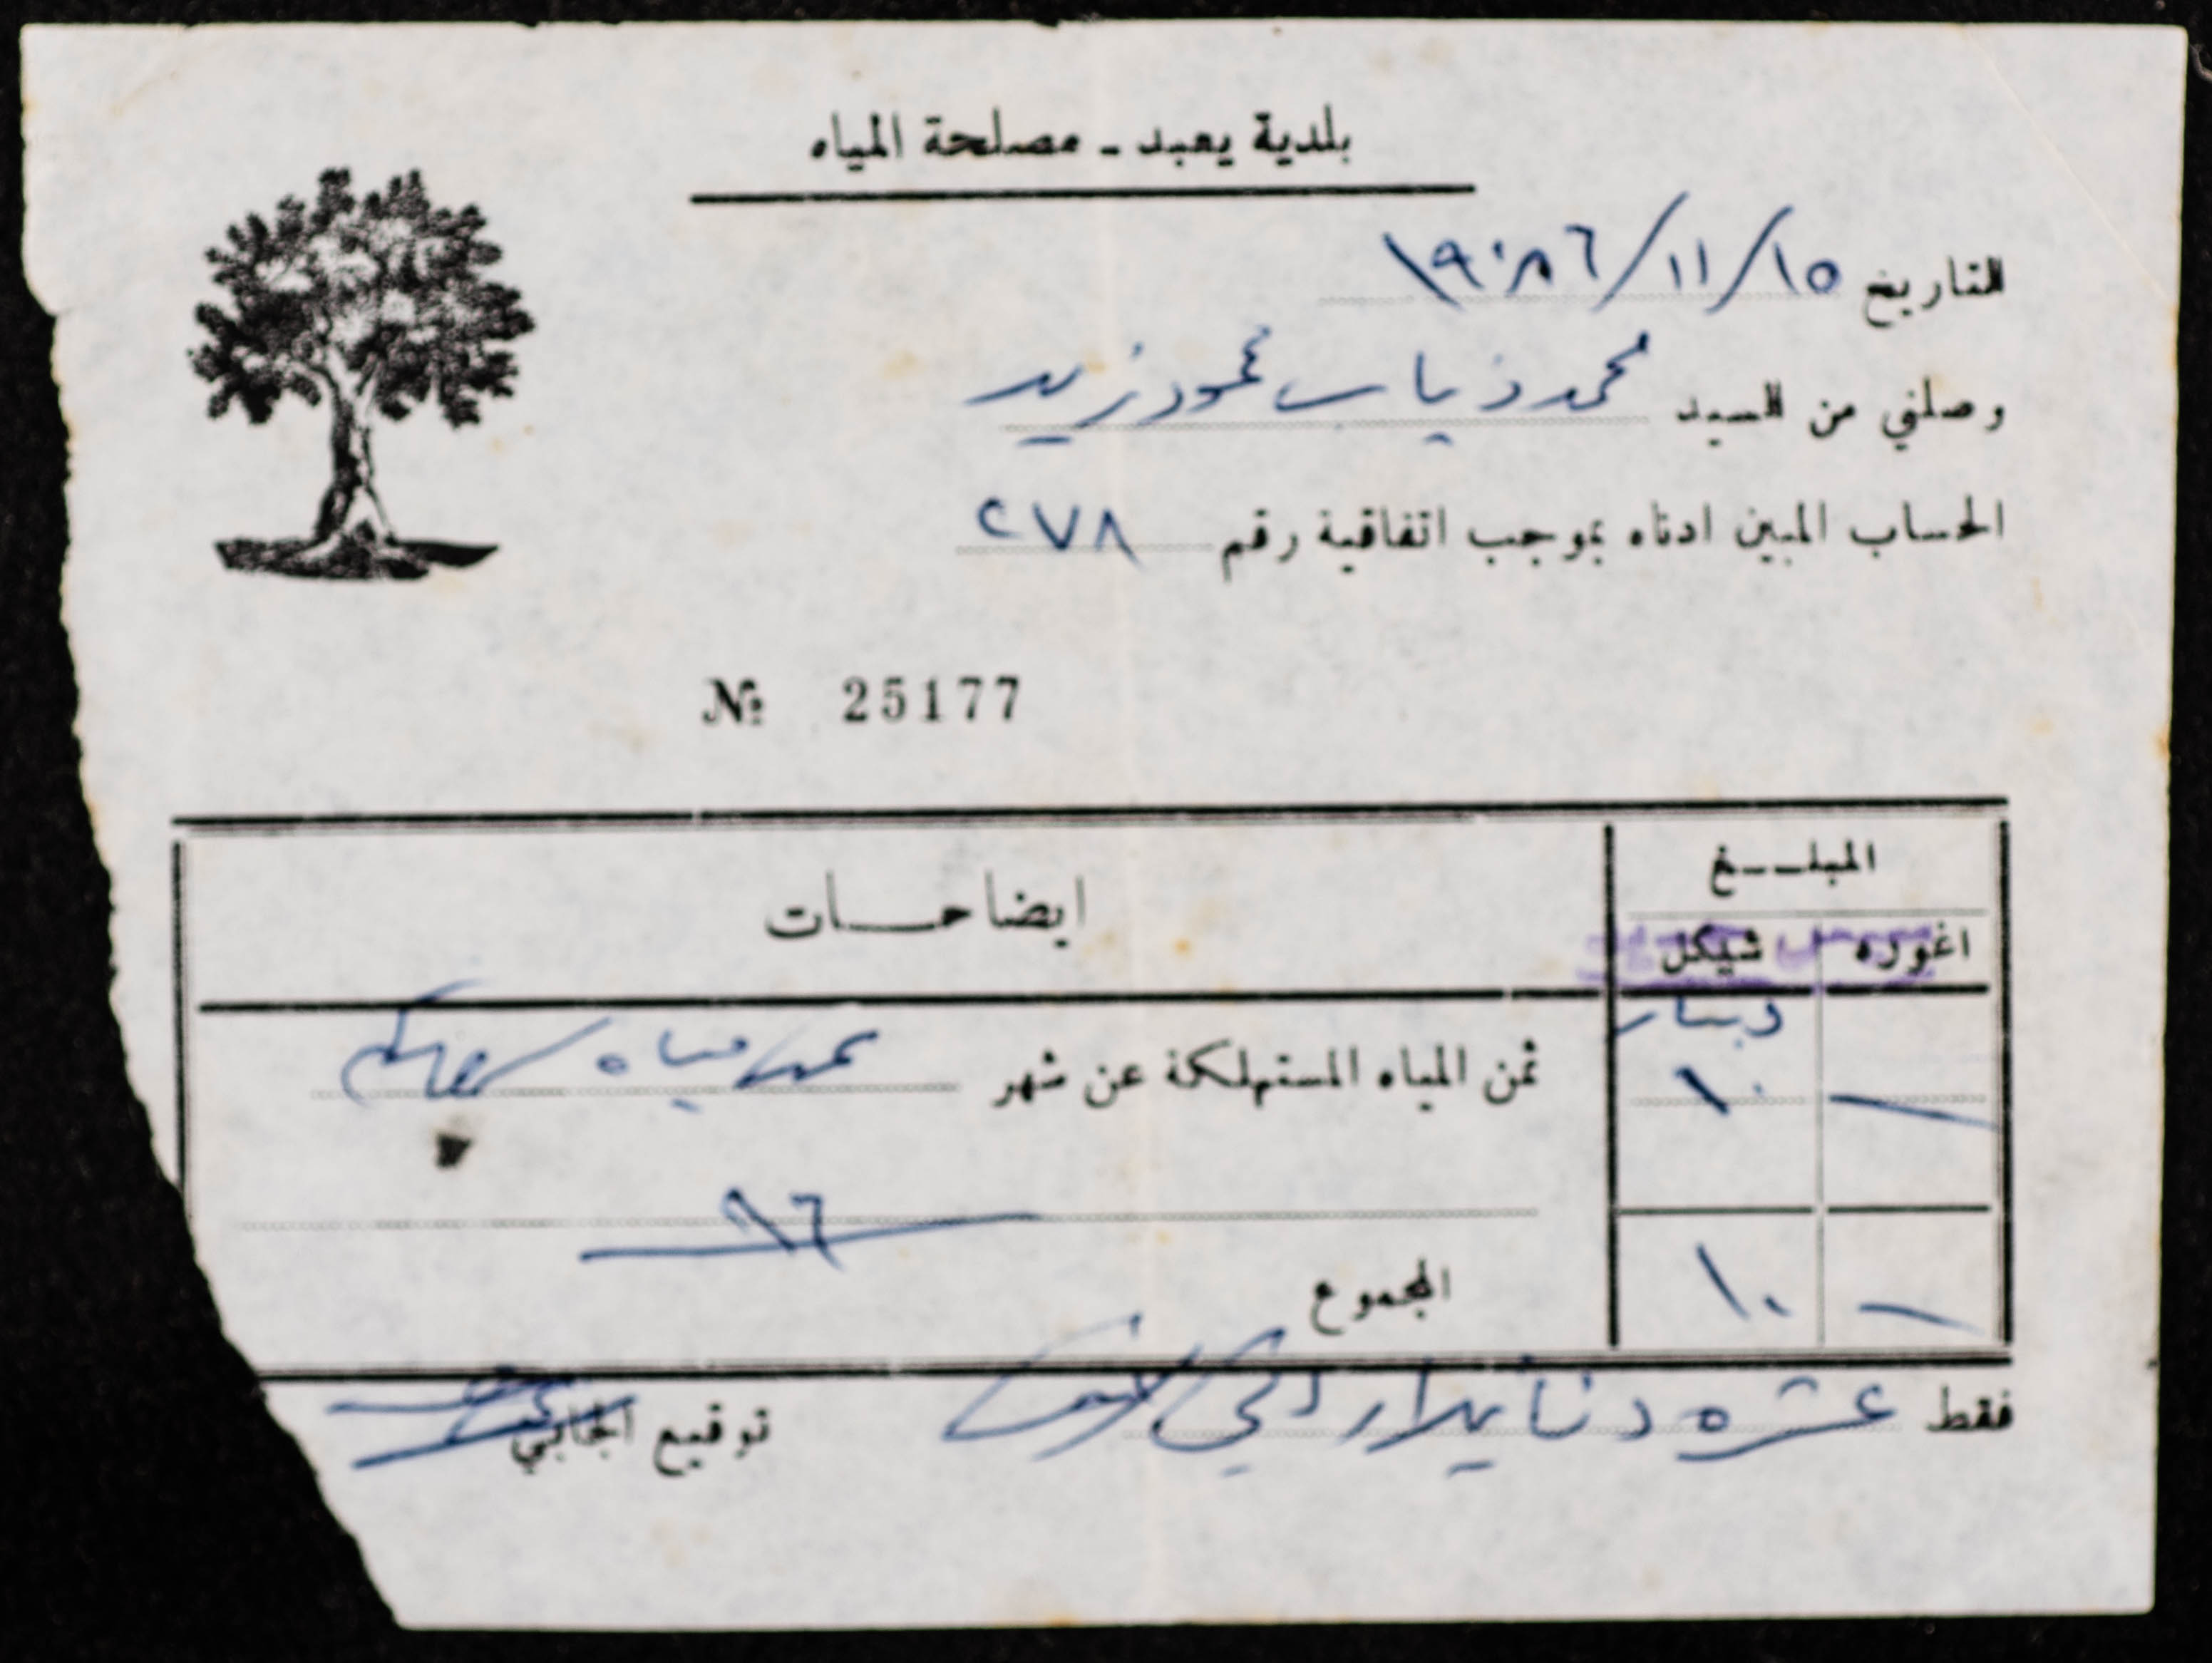 بلدية يعبد - مصلحة المياه
التاريخ ١٥/١١/١٩٨٦
وصلني من السيد محمد ذياب محمود زيد
الحساب المبين ادناه بموجب اتفاقية رقم ٢٧٨
№ 25177
المبلغ
ايضاحات
اغوره شيكل
دينار
١٠ ثمن المياه المستهلكة عن شهر
٨٦
١٠ المجموع
فقط عشره دنانير اردني توقيع الجابي